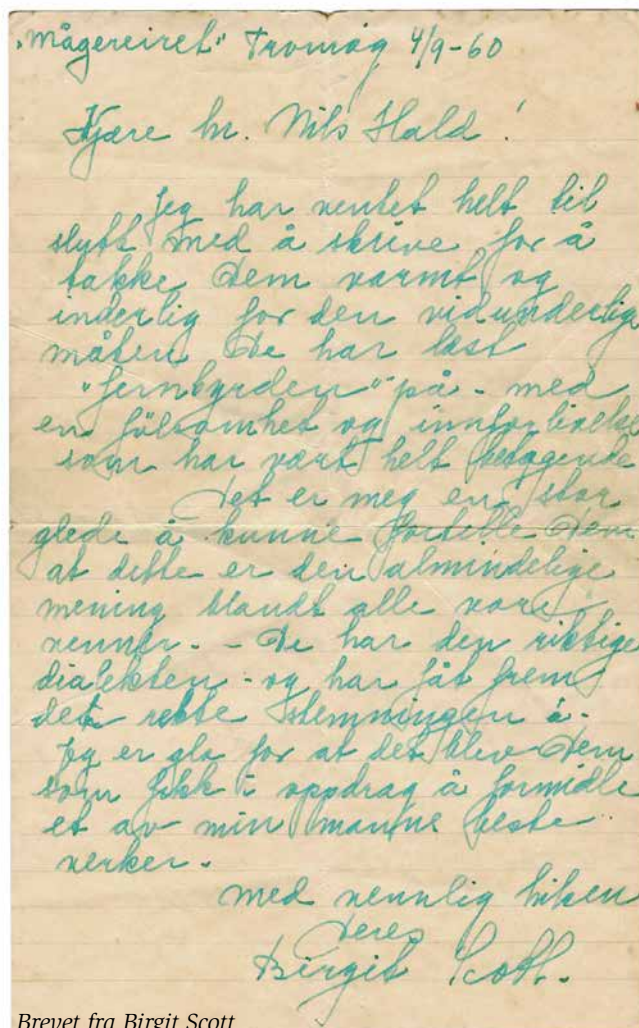 "Mågereiret" Tromøy 4/9-60
Kjære hr. Nils Hald!
Jeg har ventet helt til
slutt med å skrive for å
takke Dem varmt og
inderlig for den vidunderlige
måten De har læst
"Jernbyrden" på - med
en fölsomhet og innforlivelse
som har vært helt betagende
Det er meg en stor
glede å kunne fortelle Dem
at dette er den almindelige
mening blandt alle våre
venner. - De har den riktige
dialekten - og har fåt frem
det rette stemningen å.
Jeg er gla for at det blev Dem
som fikk i oppdrag å formidle
et av min manns beste
verker.
med vennlig hilsen
Deres
Birgit Scott.
Brevet fra Birgit Scott